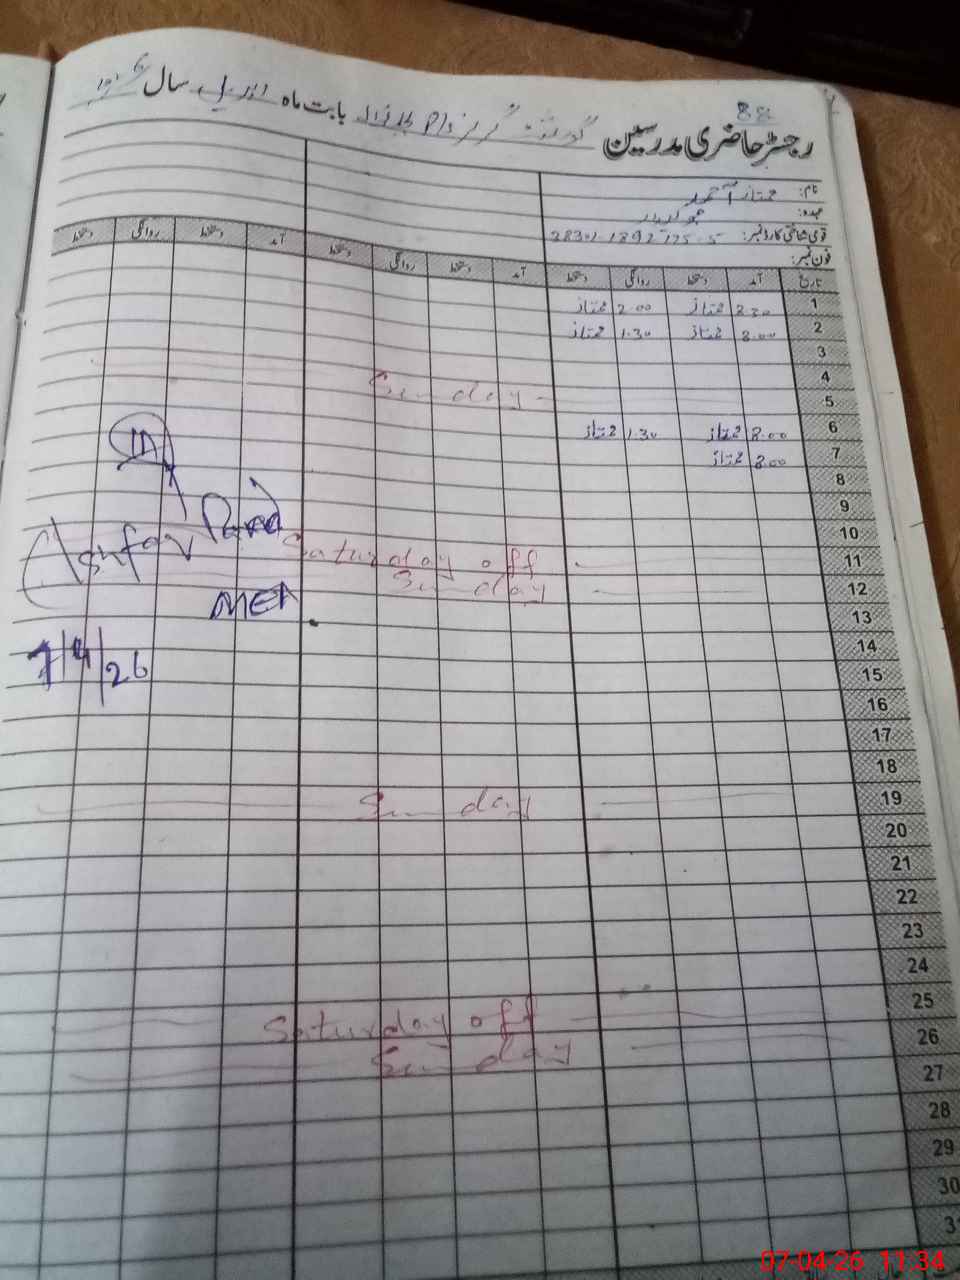 88
رجسٹر حاضری مدرسین گورنمنٹ گرلز بابت ماہ اپریل سال
نام: ممتاز احمد
عہدہ:
قومی شناختی کارڈ نمبر:
فون نمبر:
تاریخ آمد دستخط روانگی دستخط آمد دستخط روانگی دستخط آمد دستخط روانگی دستخط
1 ممتاز 2.00 ممتاز
2 8.00 ممتاز 1.30 ممتاز
3
4
5 Sunday
6 8.00 ممتاز 1.30 ممتاز
7 8.00 ممتاز
8
9
10
11 Saturday off
12 Sunday
13
14
15
16
17
18
19 Sunday
20
21
22
23
24
25 Saturday off
26 Sunday
27
28
29
30
31
MEA
7/4/26
07-04-26 11:34